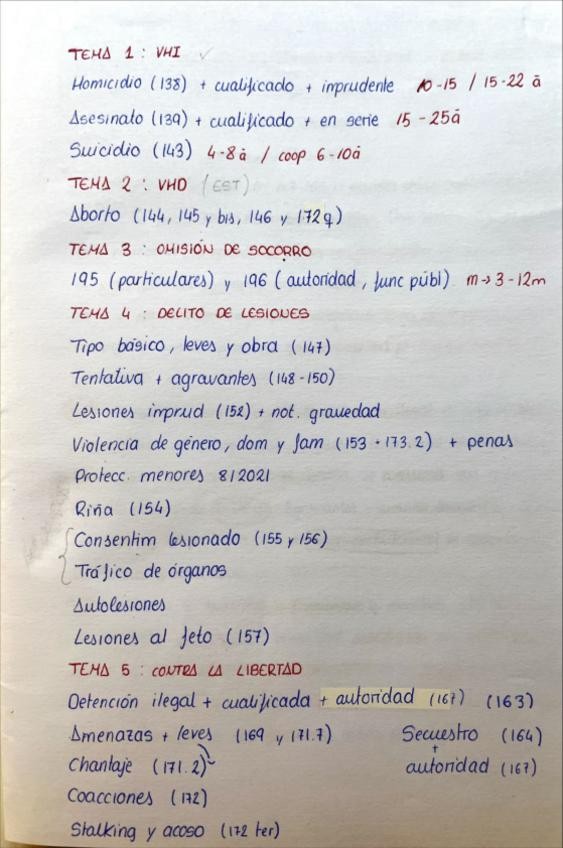 TEMA 1 : VHI ✓
Homicidio (138) + cualificado + inprudente 10-15 / 15-22 ā
Asesinato (139) + cualificado + en serie 15-25ā
Suicidio (143) 4-8ā / coop 6-10ā
TEMA 2 : VHD (EST)
Aborto (144, 145 y bis, 146 y 172q)
TEMA 3 : OMISIÓN DE SOCORRO
195 (particulares) y 196 (autoridad, func públ) m→3-12m
TEMA 4 : DELITO DE LESIONES
Tipo básico, leves y obra (147)
Tentativa + agravantes (148-150)
Lesiones imprud (152) + not. gravedad
Violencia de género, dom y fam (153 - 173.2) + penas
Protecc. menores 8/2021
Riña (154)
Consentim lesionado (155 y 156)
Tráfico de órganos
Autolesiones
Lesiones al feto (157)
TEMA 5 : CONTRA LA LIBERTAD
Detención ilegal + cualificada + autoridad (167) (163)
Amenazas + leves (169 y 171.7) Secuestro (164)
+
Chantaje (171.2) autoridad (167)
Coacciones (172)
Stalking y acoso (172 ter)